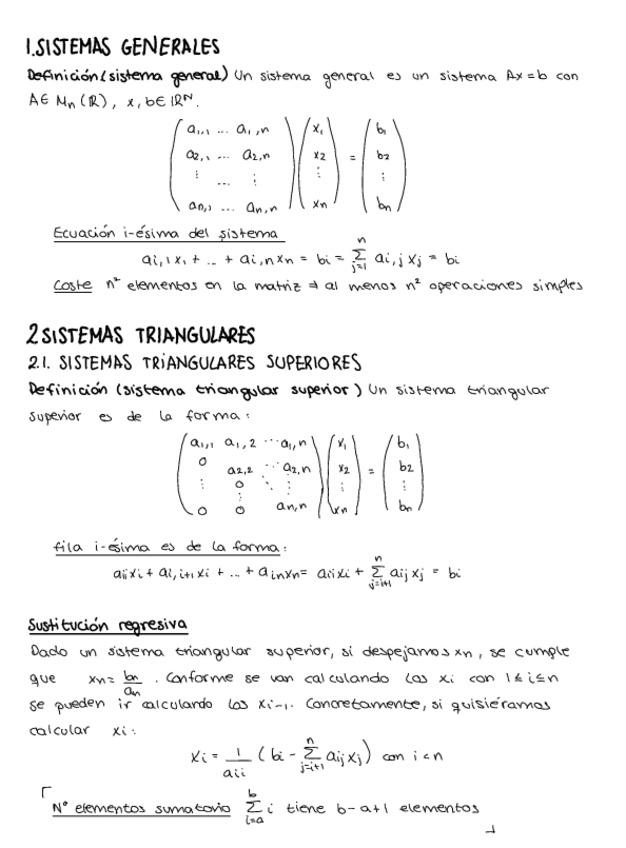 1.SISTEMAS GENERALES
Definición (sistema general) Un sistema general es un sistema Ax=b con
A∈ Mn (ℝ), x, b∈ ℝᴺ.
( a1,1 ... a1,n ) ( x1 ) = ( b1 )
( a2,1 ... a2,n ) ( x2 ) ( b2 )
( ⋮ ... ⋮ ) ( ⋮ ) ( ⋮ )
( an,1 ... an,n ) ( xn ) ( bn )
Ecuación i-ésima del sistema
ai,1x1 + ... + ai,nxn = bi = ∑_{j=1}^{n} ai,j xj = bi
Coste n² elementos en la matriz ⇒ al menos n² operaciones simples
2 SISTEMAS TRIANGULARES
2.1. SISTEMAS TRIANGULARES SUPERIORES
Definición (sistema triangular superior) Un sistema triangular
superior es de la forma:
( a1,1 a1,2 ... a1,n ) ( x1 ) = ( b1 )
( 0 a2,2 ... a2,n ) ( x2 ) ( b2 )
( ⋮ 0 ⋱ ⋮ ) ( ⋮ ) ( ⋮ )
( 0 0 an,n ) ( xn ) ( bn )
fila i-ésima es de la forma:
aiixi + ai,i+1xi + ... + ainxn = aiixi + ∑_{j=i+1}^{n} aijxj = bi
Sustitución regresiva
Dado un sistema triangular superior, si despejamos xn, se cumple
que xn = bn/an . Conforme se van calculando los xi con 1≤i≤n
se pueden ir calculando los xi-1. Concretamente, si quisiéramos
calcular xi:
xi = 1/aii (bi - ∑_{j=i+1}^{n} aijxj) con i<n
Nº elementos sumatorio ∑_{i=a}^{b} i tiene b-a+1 elementos